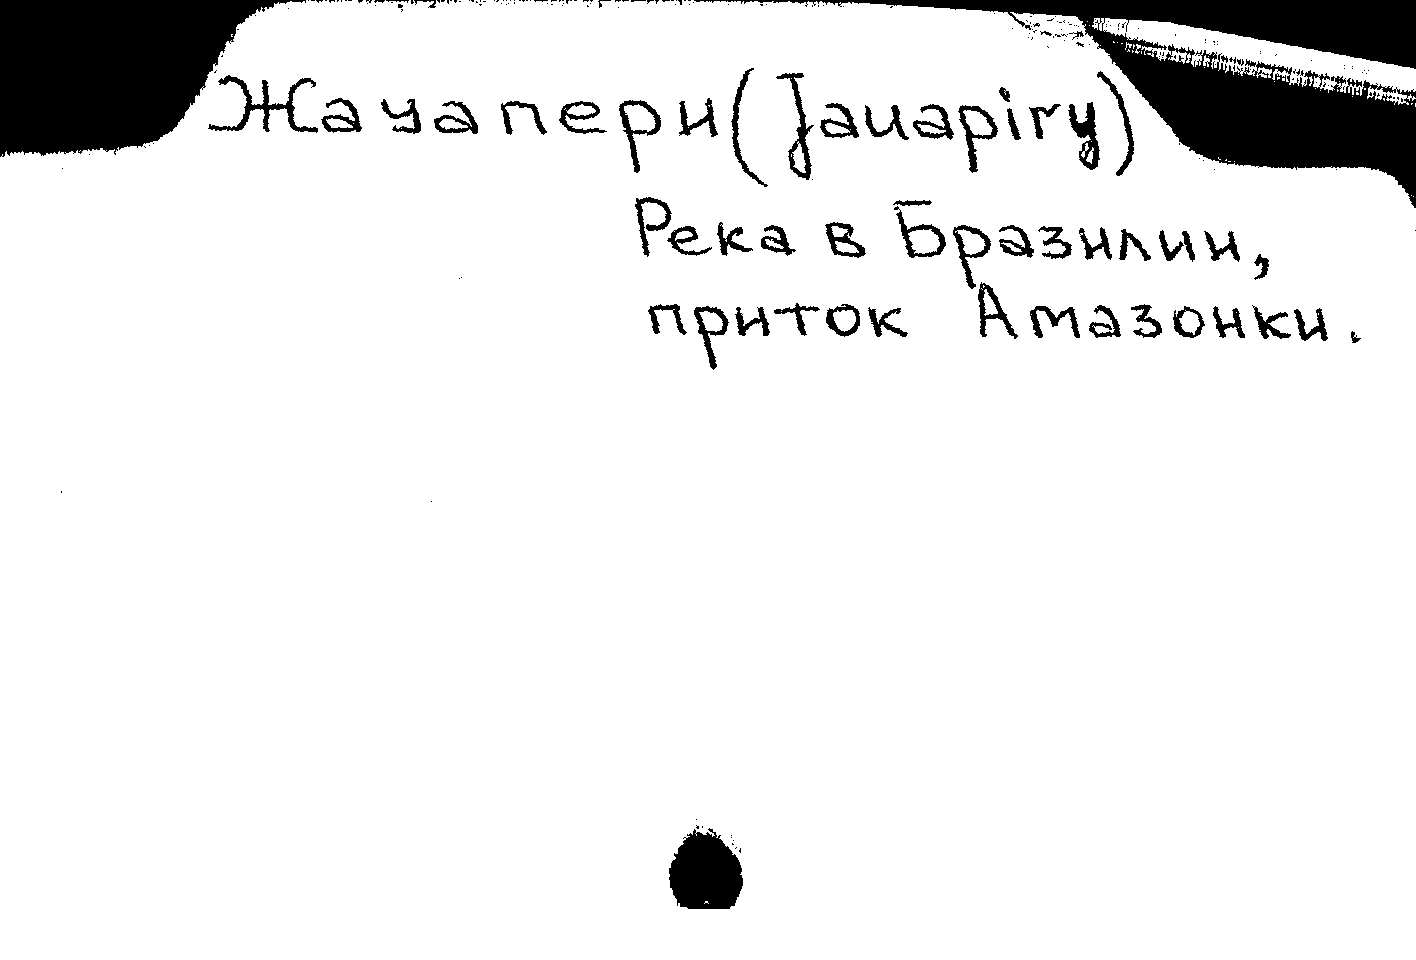 Жауапери (Jauapiry)
Река в Бразилии,
приток Амазонки.